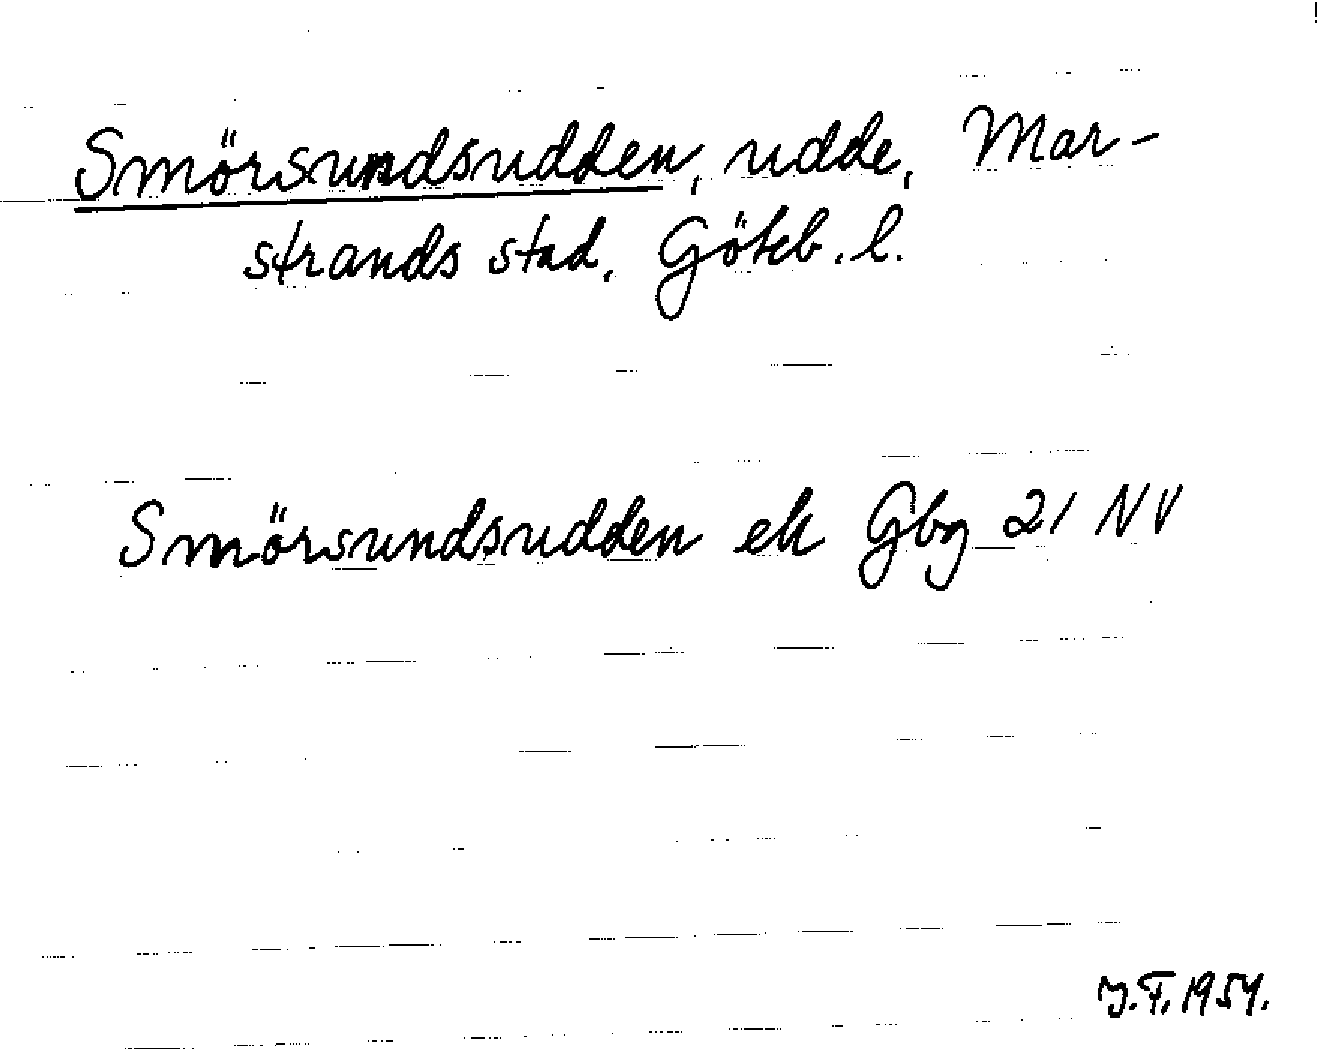 Smörsundsudden, udde, Mar-
strands stad, Göteb. l.
Smörsundsudden ek Gbg 21 NV
J.F. 1954.